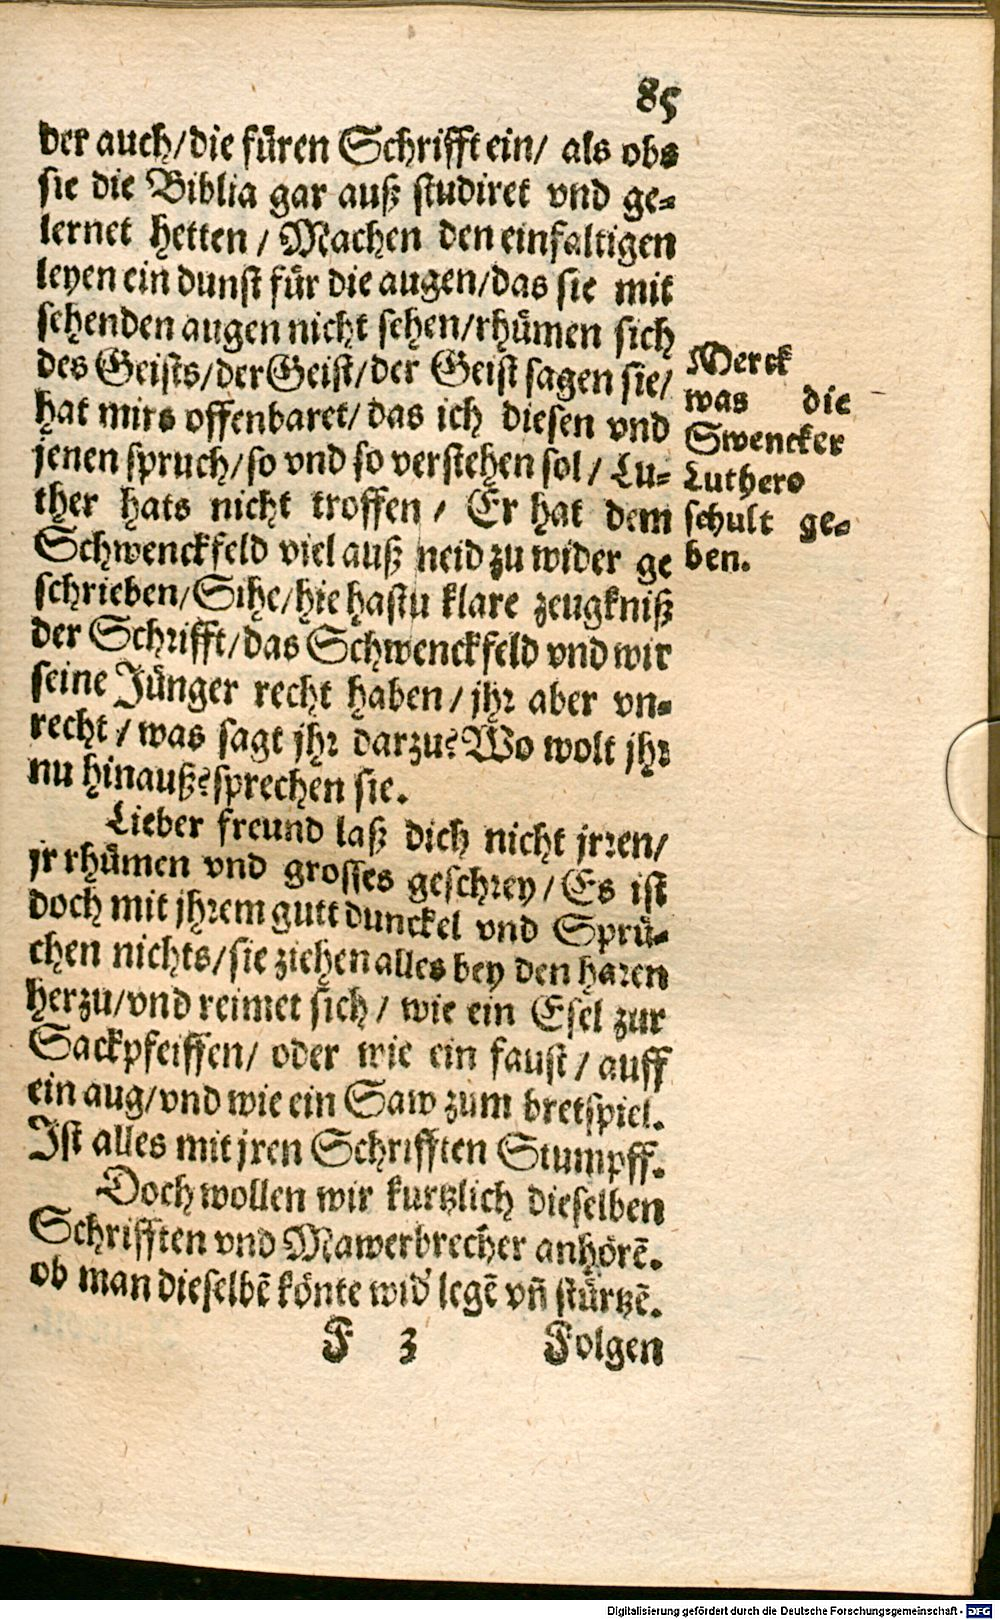 85
der auch/die füren Schrifft ein/ als obs
sie die Biblia gar auß studiret vnd ge-
lernet hetten / Machen den einfaltigen
leyen ein dunst für die augen/das sie mit
sehenden augen nicht sehen/rhümen sich
des Geists/der Geist/der Geist sagen sie/
hat mirs offenbaret/das ich diesen vnd
jenen spruch/so vnd so verstehen sol/ Lu-
ther hats nicht troffen / Er hat dem
Schwenckfeld viel auß neid zu wider ge
schrieben/Sihe/hie hastu klare zeugkniß
der Schrifft/das Schwenckfeld vnd wir
seine Jünger recht haben / jhr aber vn-
recht / was sagt jhr darzu? Wo wolt jhr
nu hinauß? sprechen sie.
Lieber freund laß dich nicht jrren/
jr rhümen vnd grosses geschrey / Es ist
doch mit jhrem gutt dunckel vnd Sprü-
chen nichts/sie ziehen alles bey den haren
herzu/vnd reimet sich / wie ein Esel zur
Sackpfeiffen/ oder wie ein faust / auff
ein aug/vnd wie ein Saw zum bretspiel.
Ist alles mit jren Schrifften Stumpff.
Doch wollen wir kurtzlich dieselben
Schrifften vnd Mawerbrecher anhörẽ.
ob man dieselbẽ könte wid' legẽ vñ stürtzẽ.
F 3 Folgen
Merck
was die
Swencker
Luthero
schult ge-
ben.
Digitalisierung gefördert durch die Deutsche Forschungsgemeinschaft - DFG